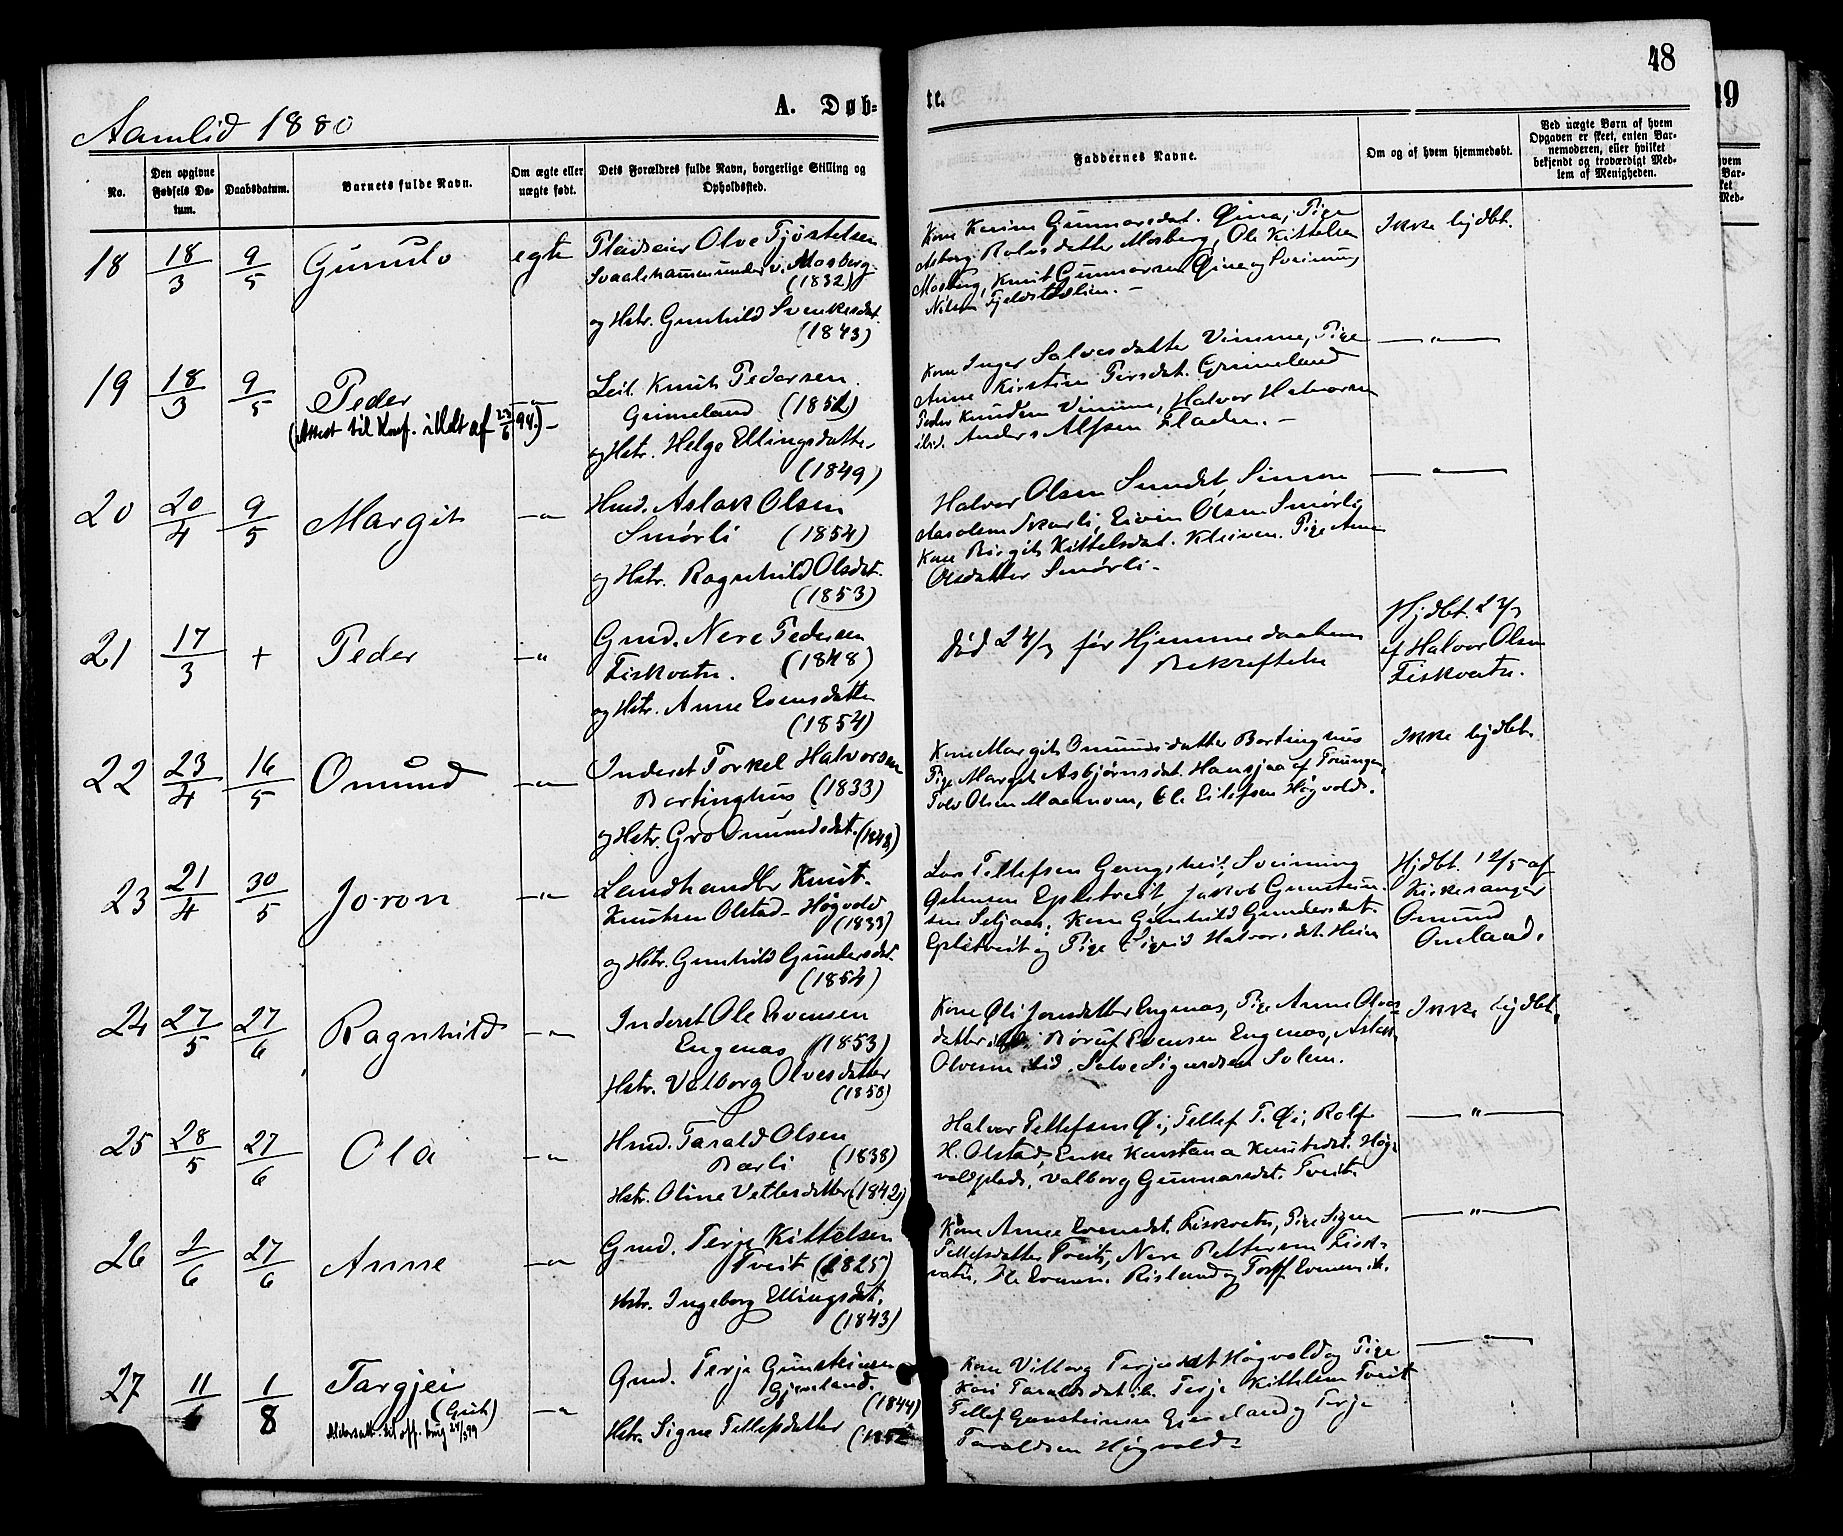 48
19
Aamlid 1880
A. Døb-
te.
No.
Den opgivne Fødsels Da-tum.
Daabsdatum.
Barnets fulde Navn.
Om ægte eller uægte født.
Dets Forældres fulde Navn, borgerlige Stilling og Opholdssted.
Faddernes Navne.
Om og af hvem hjemmedøbt.
Ved uægte Børn af hvem Opgaven er skeet, enten Bar-nemoderen, eller hvilket bekjendt og troværdigt Med-lem af Menigheden.
18 18/3 9/5 Gunulv egte
Pladseier Olve Tjøstelsen
under Mosberg
(1832)
og Hstr. Gunhild
(1843)
Kone Gunnarsdat. Pige
Rolvsdatter Mosberg, Ole Kittelsen
Mosberg, Knut Gunnarsen
Nilsen
Ikke hjdbt.
19 18/3 9/5 Peder
(Attest til Konf. 23/6 94.)
Leil. Knut Pedersen
Grimeland
og Hstr. Helge Ellingsdatter
(1849)
Kone Inger Salvesdatter Vimme, Pige
Anne Kirstin Persdat. Grimeland
Peder Knudsen Vimme, Halvor Halvorsen
ibid. Anders Alfsen Fladen.
20 20/4 9/5 Margit
Hmd. Aslak Olsen
Smørli (1854)
og Hstr. Ragnhild Olsdat.
(1853)
Halvor Olsen Sundet, Simon
Skarli, Eivin Olsen Smørli
Kone Birgit Kittelsdat. Kleiven. Pige Anne
Olsdatter Smørli.
21 17/3 + Peder
Gmd. Nere Pedersen
Fiskvatn. (1848)
og Hstr. Anne Evensdatter
(1854)
Død før Hjemmedaabens
Bekræftelse
Hjdbt.
af Halvor Olsen
Fiskvatn.
22 23/4 16/5 Omund
Inderst Torkel Halvorsen
Bortinghus (1833)
og Hstr. Gro Omundsdat. (1848)
Kone Margit Omundsdatter Bortinghus
Pige Margit Asbjørnsdat. Hansjaa af Treungen,
Tolv Olsen, Ole Eilefsen Høgvold.
Ikke hjdbt.
23 21/4 30/5 Joron
Landhandler Knut
Knutsen Olstad - Høgvold
og Hstr. Gunhild Gundersdat.
(1854)
Lars Tellefsen, Sveinung
Epletveit Jakob Gunstein-
sen Seljaas, Kone Gunhild Gundersdat.
Epletveit og Pige Sigrid Halvorsdat.
Hjdbt. 12/5 af
Kirkesanger
Omund
Omland.
24 27/5 27/6 Ragnhild
Inderst Ole Evensen
Engenæs (1853)
Hstr. Valborg Olvesdatter
(1850)
Kone Jonsdatter Engenæs, Pige Anne Olves-
datter Evensen Engenæs, Aslak
Olvesen ibid. Salve Sigurdsen Solem.
Ikke hjdbt.
25 28/5 27/6 Ola
Hmd. Tarald Olsen
Bærli (1838)
Hstr. Oline Vetlesdatter (1842)
Halvor Tellefsen Øi, Tellef T. Øi, Rolf
H. Olstad, Enke Konstansa Knutsdat. Høg-
voldplads, Valborg Gunnarsdat. Tveit.
26 2/6 27/6 Anne
Gmd. Terje Kittelsen
Tveit (1825)
Hstr. Ingeborg Ellingsdat.
(1843)
Kone Anne Evensdat. Fiskvatn, Pige Signe
Tellefsdatter Tveit, Nere Pettersen Fisk-
vatn, Ole Evensen Risland og
27 11/6 1/8 Targjei
(Gut)
Gmd. Terje Gunsteinsen
Gjeveland.
(1844)
Hstr. Signe Tellefsdatter
Kone Vilborg Terjesdat. Høgvold og Pige
Kari Taraldsdat. ib. Terje Kittelsen Tveit
Tellef Gunsteinsen Gjeveland og Terje
Taraldsen Høgvold.